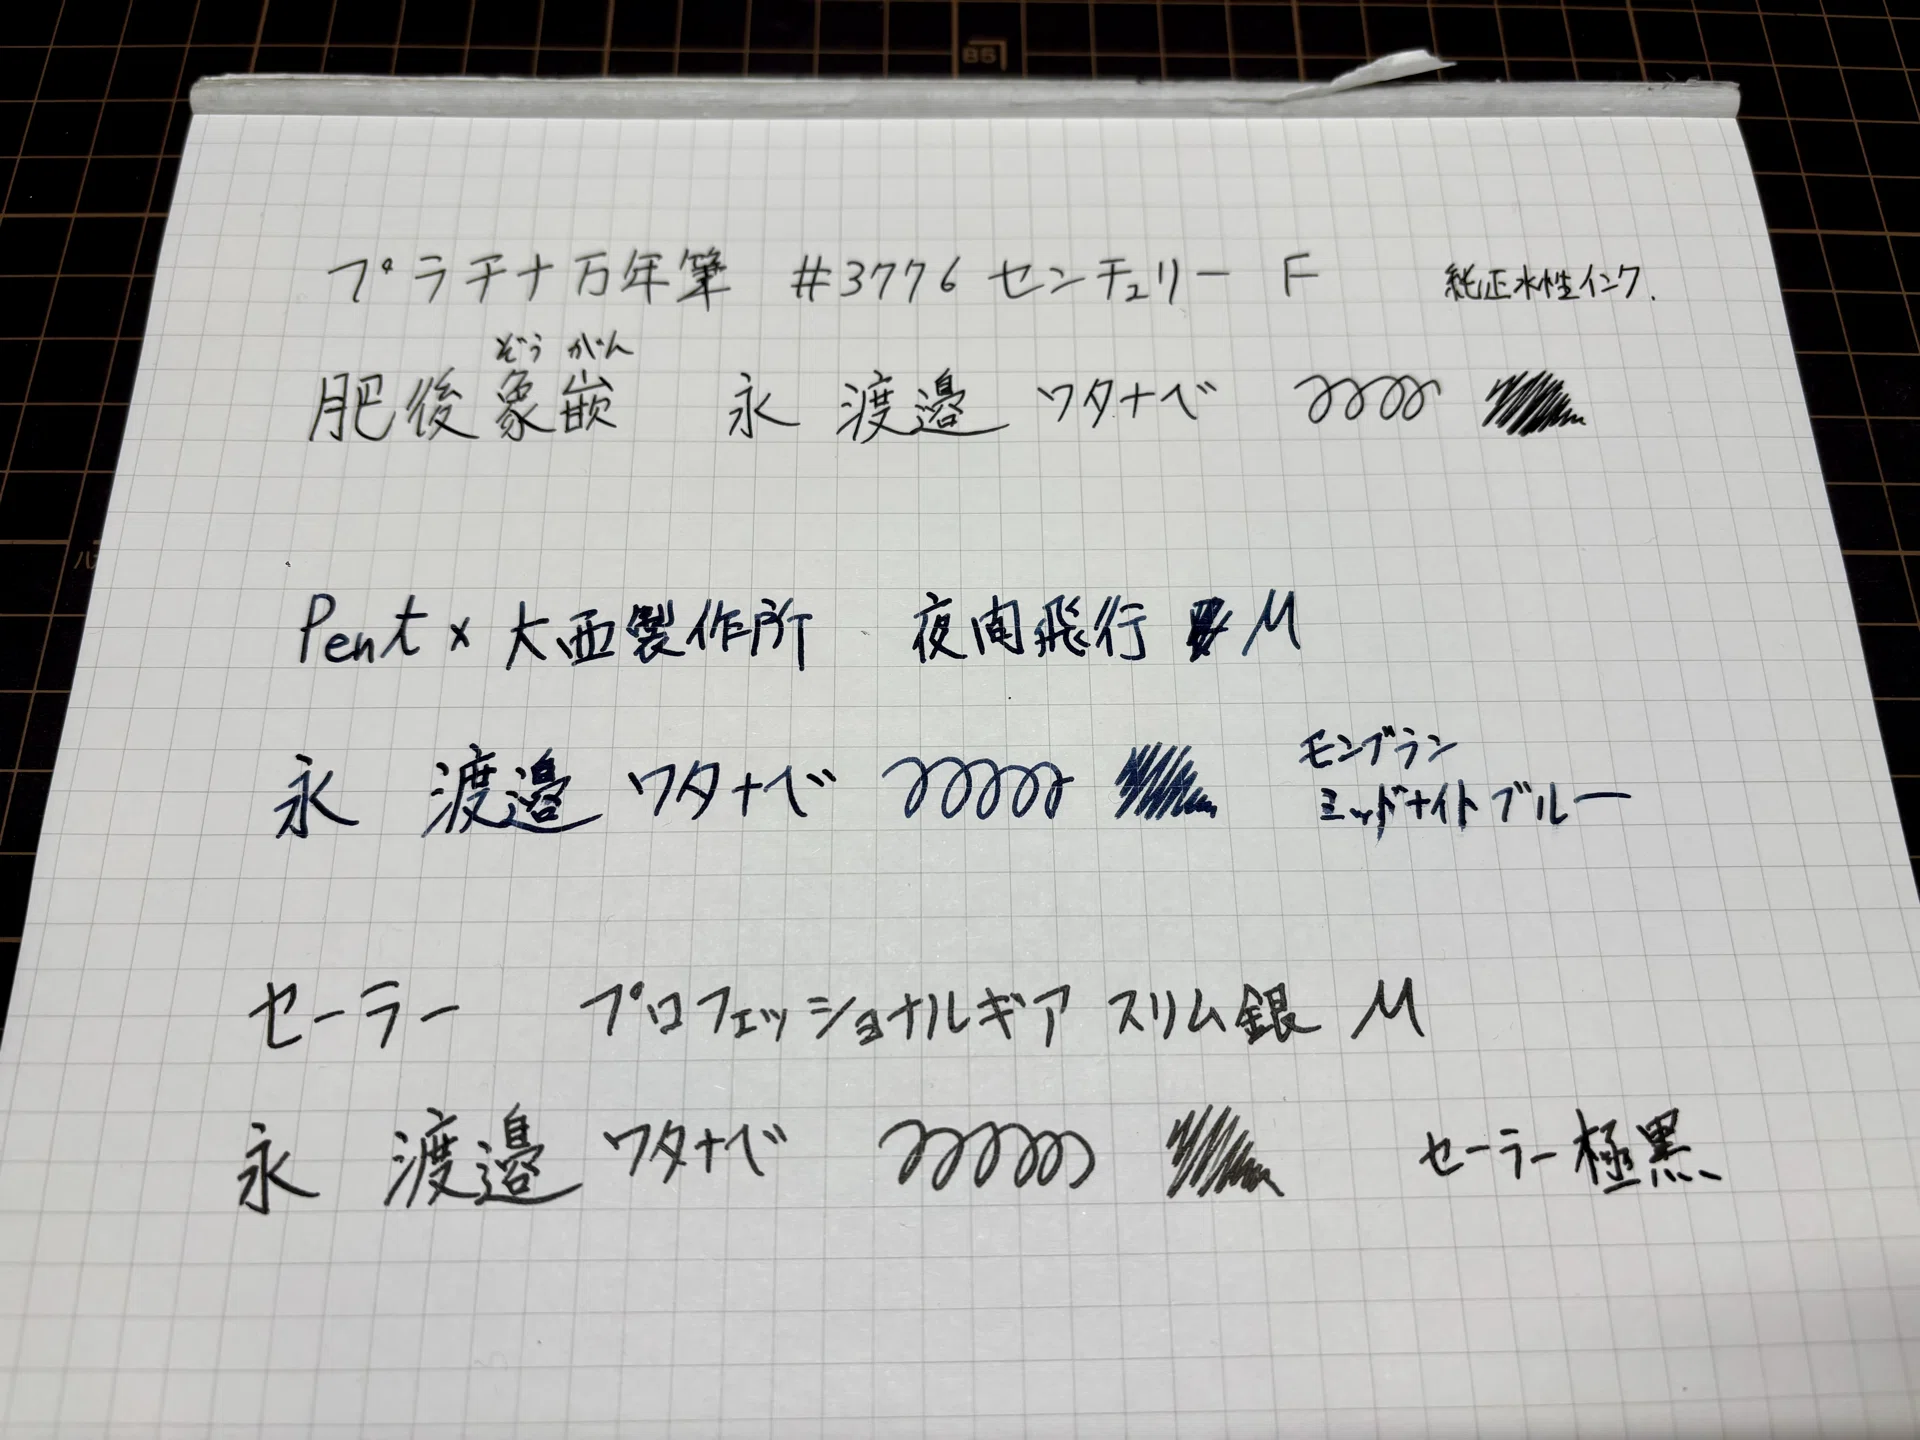 B5
プラチナ万年筆 #3776 センチュリー F 純正水性インク.
ぞうがん
肥後象嵌 永 渡邉 ワタナベ
Pent x 大西製作所 夜間飛行 M
永 渡邉 ワタナベ モンブラン
ミッドナイトブルー
セーラー プロフェッショナルギア スリム銀 M
永 渡邉 ワタナベ セーラー極黒